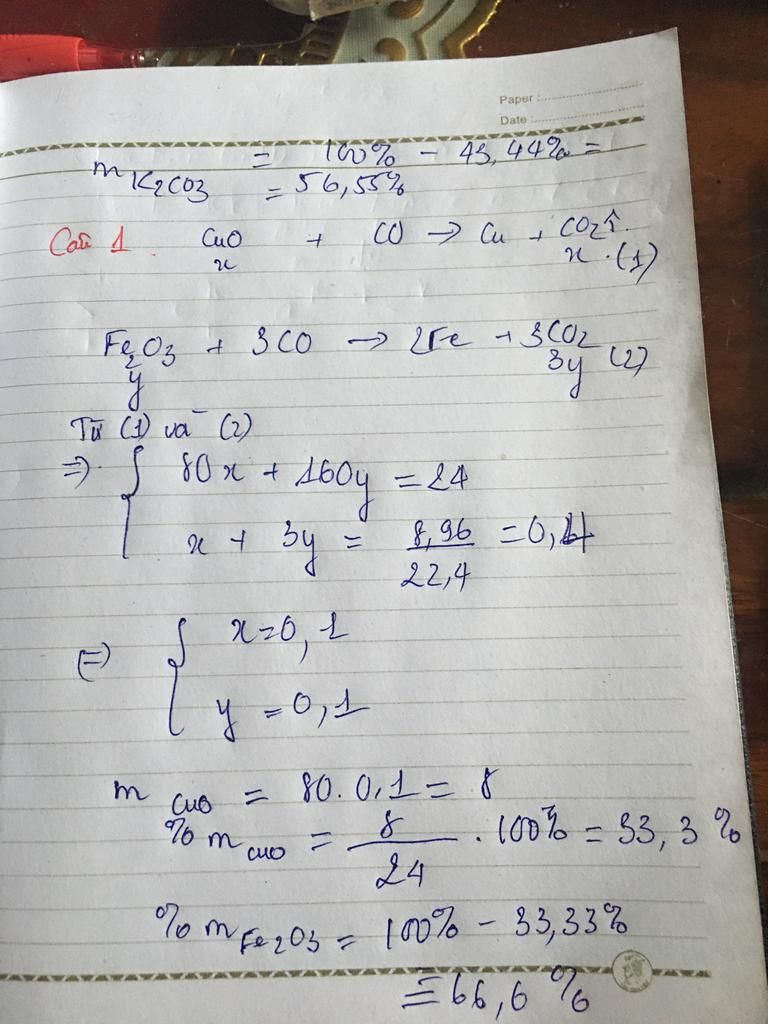 Paper :
Date :
m K2CO3 = 100% - 43,44% =
= 56,55%
Câu 1. CuO + CO → Cu + CO2↑
x x (1)
Fe2O3 + 3CO → 2Fe + 3CO2
y 3y (2)
Từ (1) và (2)
⇒ { 80x + 160y = 24
x + 3y = 8,96/22,4 = 0,4
⇔ { x = 0,1
y = 0,1
m CuO = 80.0,1 = 8
% m CuO = 8/24 . 100% = 33,3%
% m Fe2O3 = 100% - 33,33%
= 66,6%